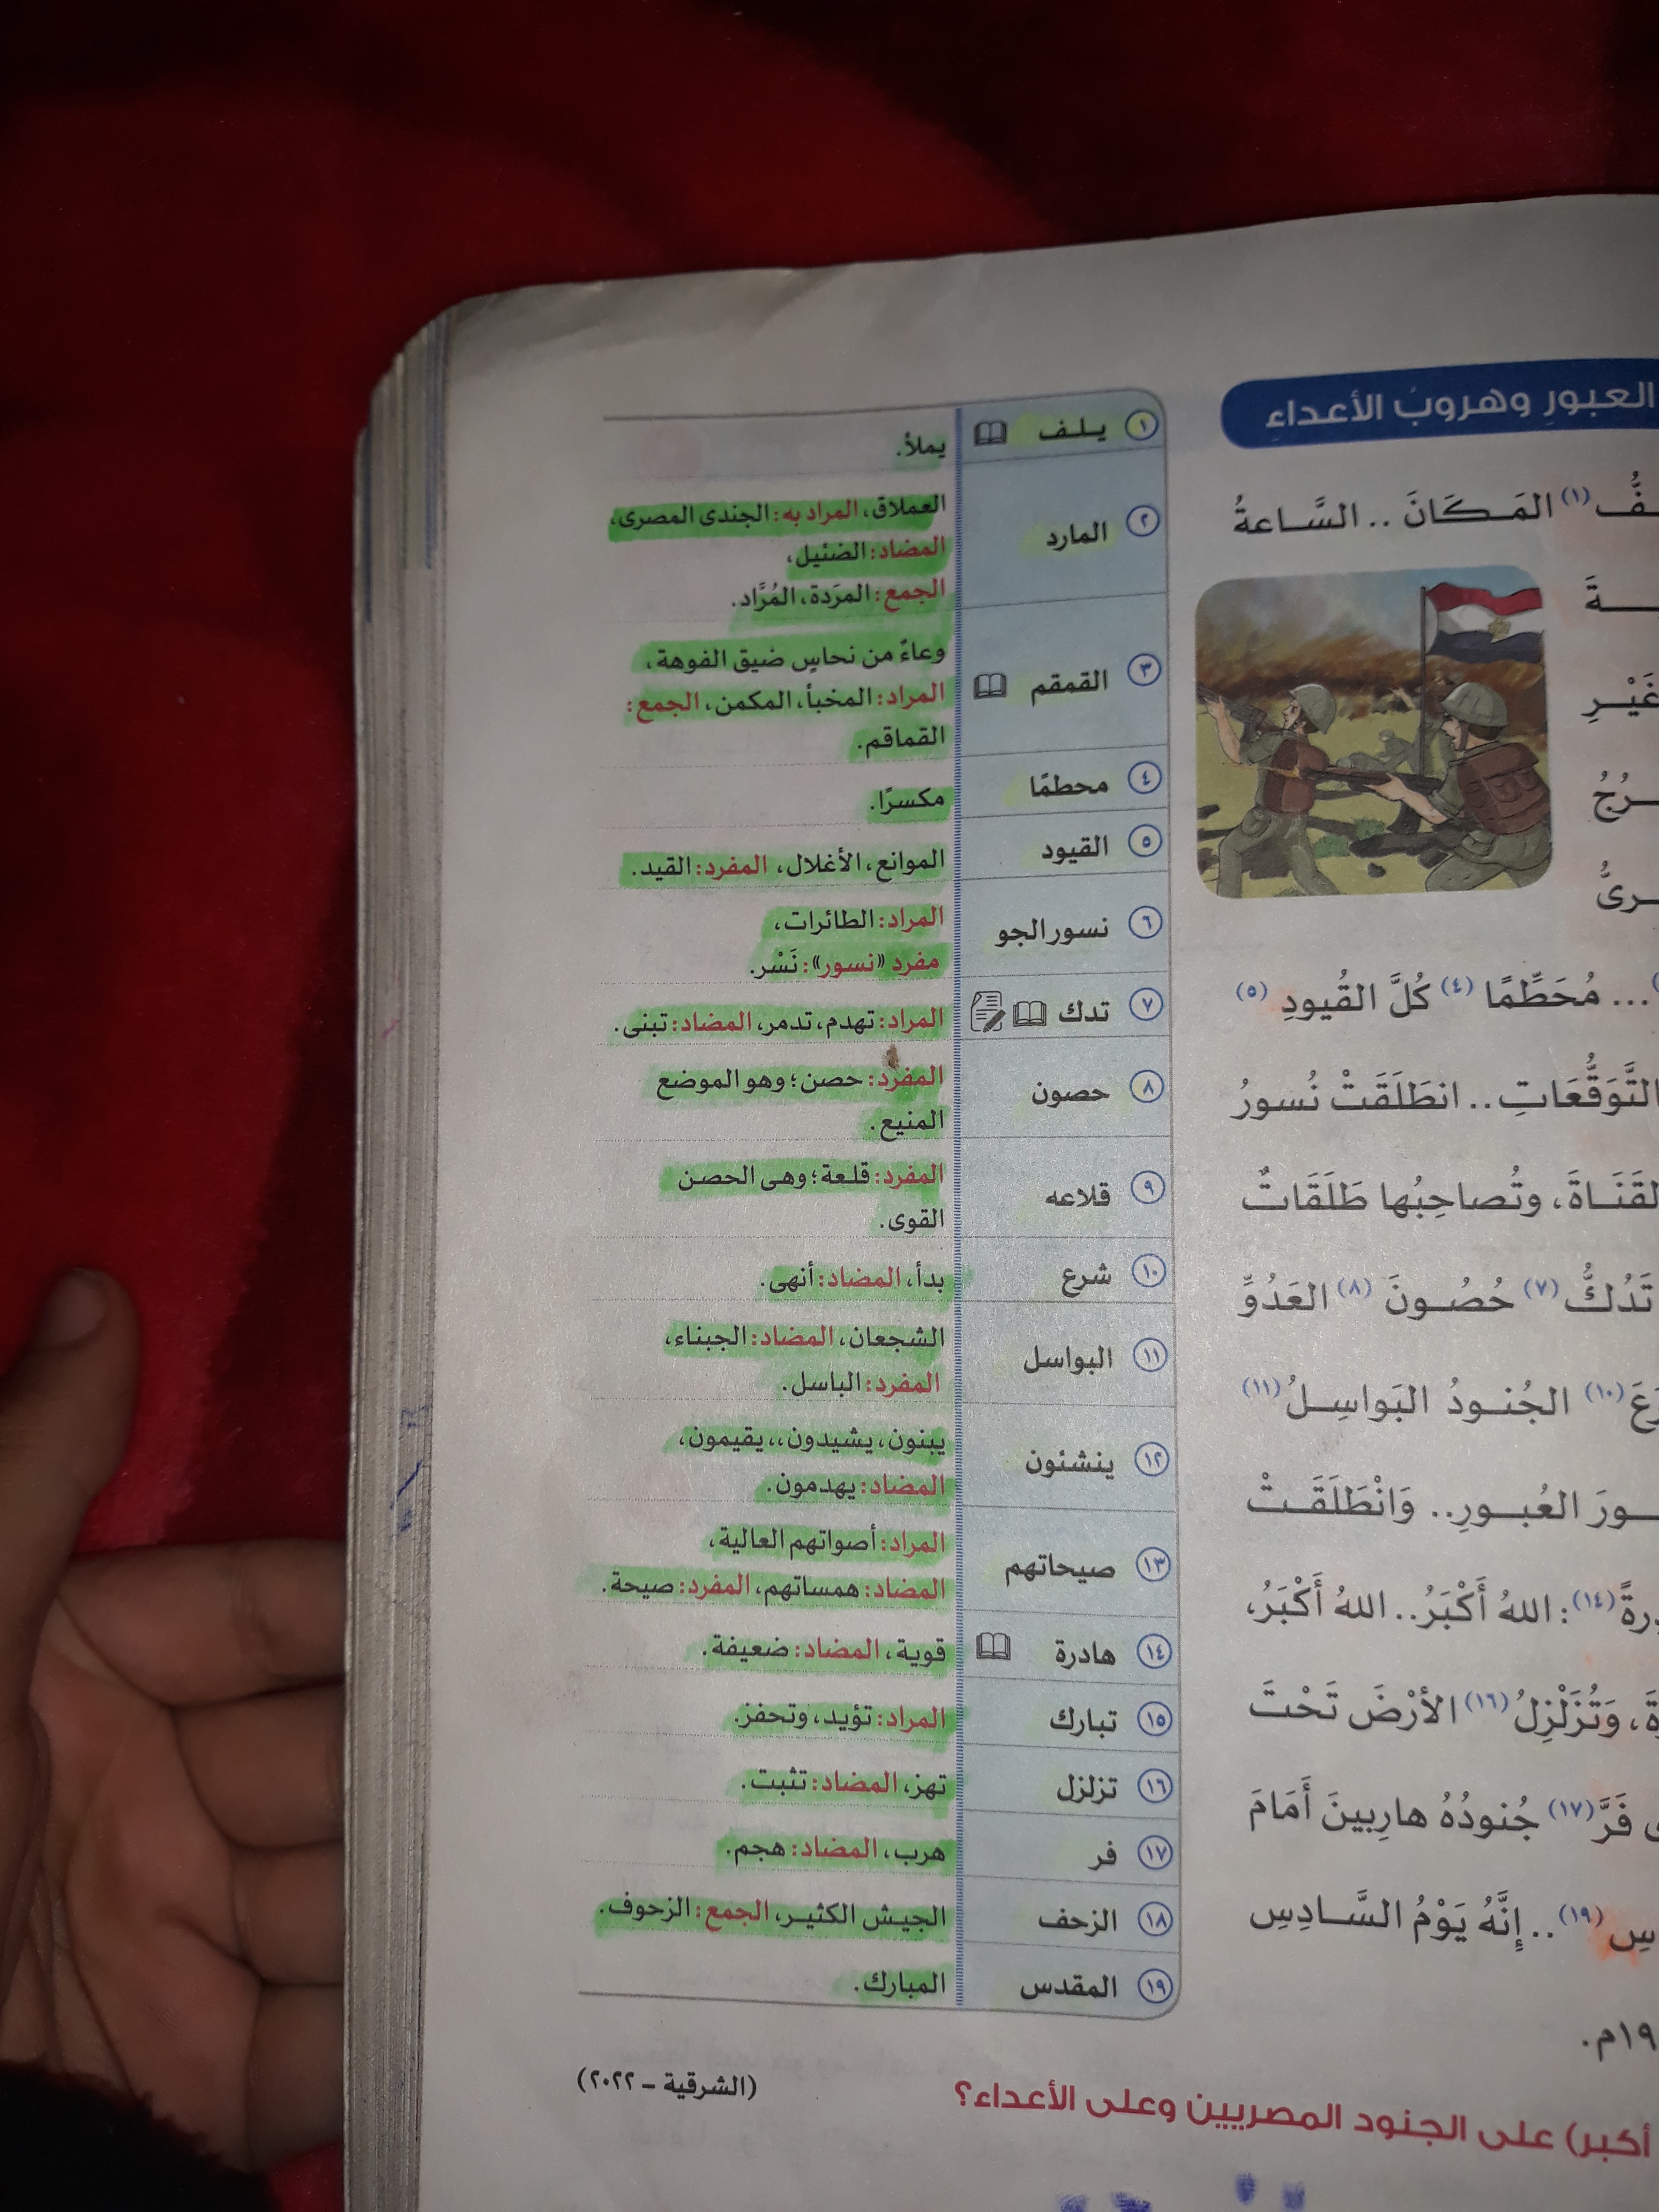 العبورِ وهروبُ الأعداءِ
(١) المَكَانَ .. السَّاعةُ
... مُحَطِّمًا (٤) كُلَّ القُيودِ (٥)
التَّوَقُّعَاتِ .. انطَلَقَتْ نُسورُ
القَنَاةَ، وتُصاحِبُها طَلَقَاتٌ
تَدُكُّ (٧) حُصُونَ (٨) العَدُوِّ
(١٠) الجُنودُ البَواسِلُ (١١)
العُبورِ.. وَانْطَلَقَتْ
(١٤): اللهُ أَكْبَرُ.. اللهُ أَكْبَرُ،
وَتُزَلْزِلُ (١٦) الأرْضَ تَحْتَ
فَرَّ (١٧) جُنودُهُ هارِبينَ أَمَامَ
(١٩) .. إِنَّهُ يَوْمُ السَّادِسِ
١٩م.
١ يلف يملأ.
٢ المارد العملاق، المراد به: الجندى المصرى،
المضاد: الضئيل،
الجمع: المرَدة، المُرَّاد.
٣ القمقم وعاءٌ من نحاسٍ ضيق الفوهة،
المراد: المخبأ، المكمن، الجمع:
القماقم.
٤ محطمًا مكسرًا.
٥ القيود الموانع، الأغلال، المفرد: القيد.
٦ نسور الجو المراد: الطائرات،
مفرد «نسور»: نَسْر.
٧ تدك المراد: تهدم، تدمر، المضاد: تبنى.
٨ حصون المفرد: حصن؛ وهو الموضع
المنيع.
٩ قلاعه المفرد: قلعة؛ وهى الحصن
القوى.
١٠ شرع بدأ، المضاد: أنهى.
١١ البواسل الشجعان، المضاد: الجبناء،
المفرد: الباسل.
١٢ ينشئون يبنون، يشيدون،، يقيمون،
المضاد: يهدمون.
١٣ صيحاتهم المراد: أصواتهم العالية،
المضاد: همساتهم، المفرد: صيحة.
١٤ هادرة قوية، المضاد: ضعيفة.
١٥ تبارك المراد: تؤيد، وتحفز.
١٦ تزلزل تهز، المضاد: تثبت.
١٧ فر هرب، المضاد: هجم.
١٨ الزحف الجيش الكثير، الجمع: الزحوف.
١٩ المقدس المبارك.
أكبر) على الجنود المصريين وعلى الأعداء؟ (الشرقية – ٢٠٢٢)